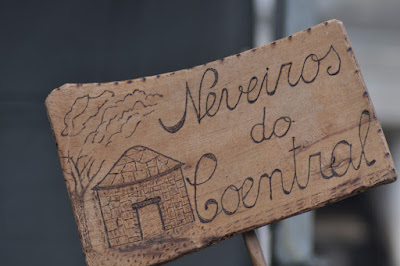 Neveiros
do
Coentral